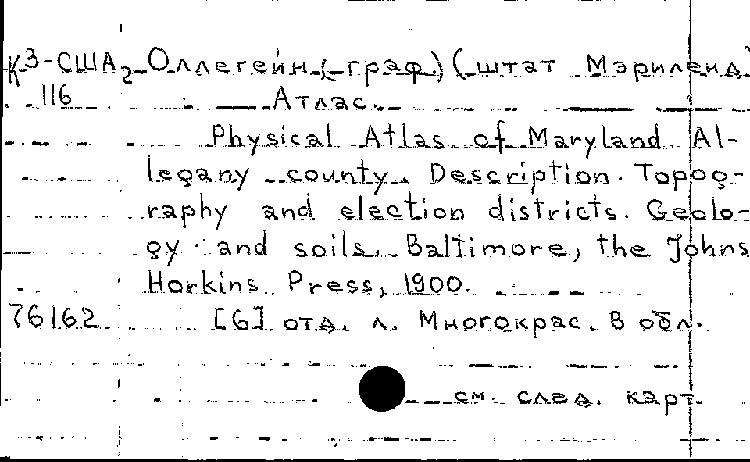 К3-США2 Оллегейн (-граф) (штат Мэриленд)
116 Атлас.
Physical Atlas of Maryland Al-
legany county. Description. Topog-
raphy and election districts. Geolo-
gy and soils. Baltimore, the Johns
Horkins Press, 1900.
76162 [6] отд. л. Многокрас. В обл.
см. след. карт.